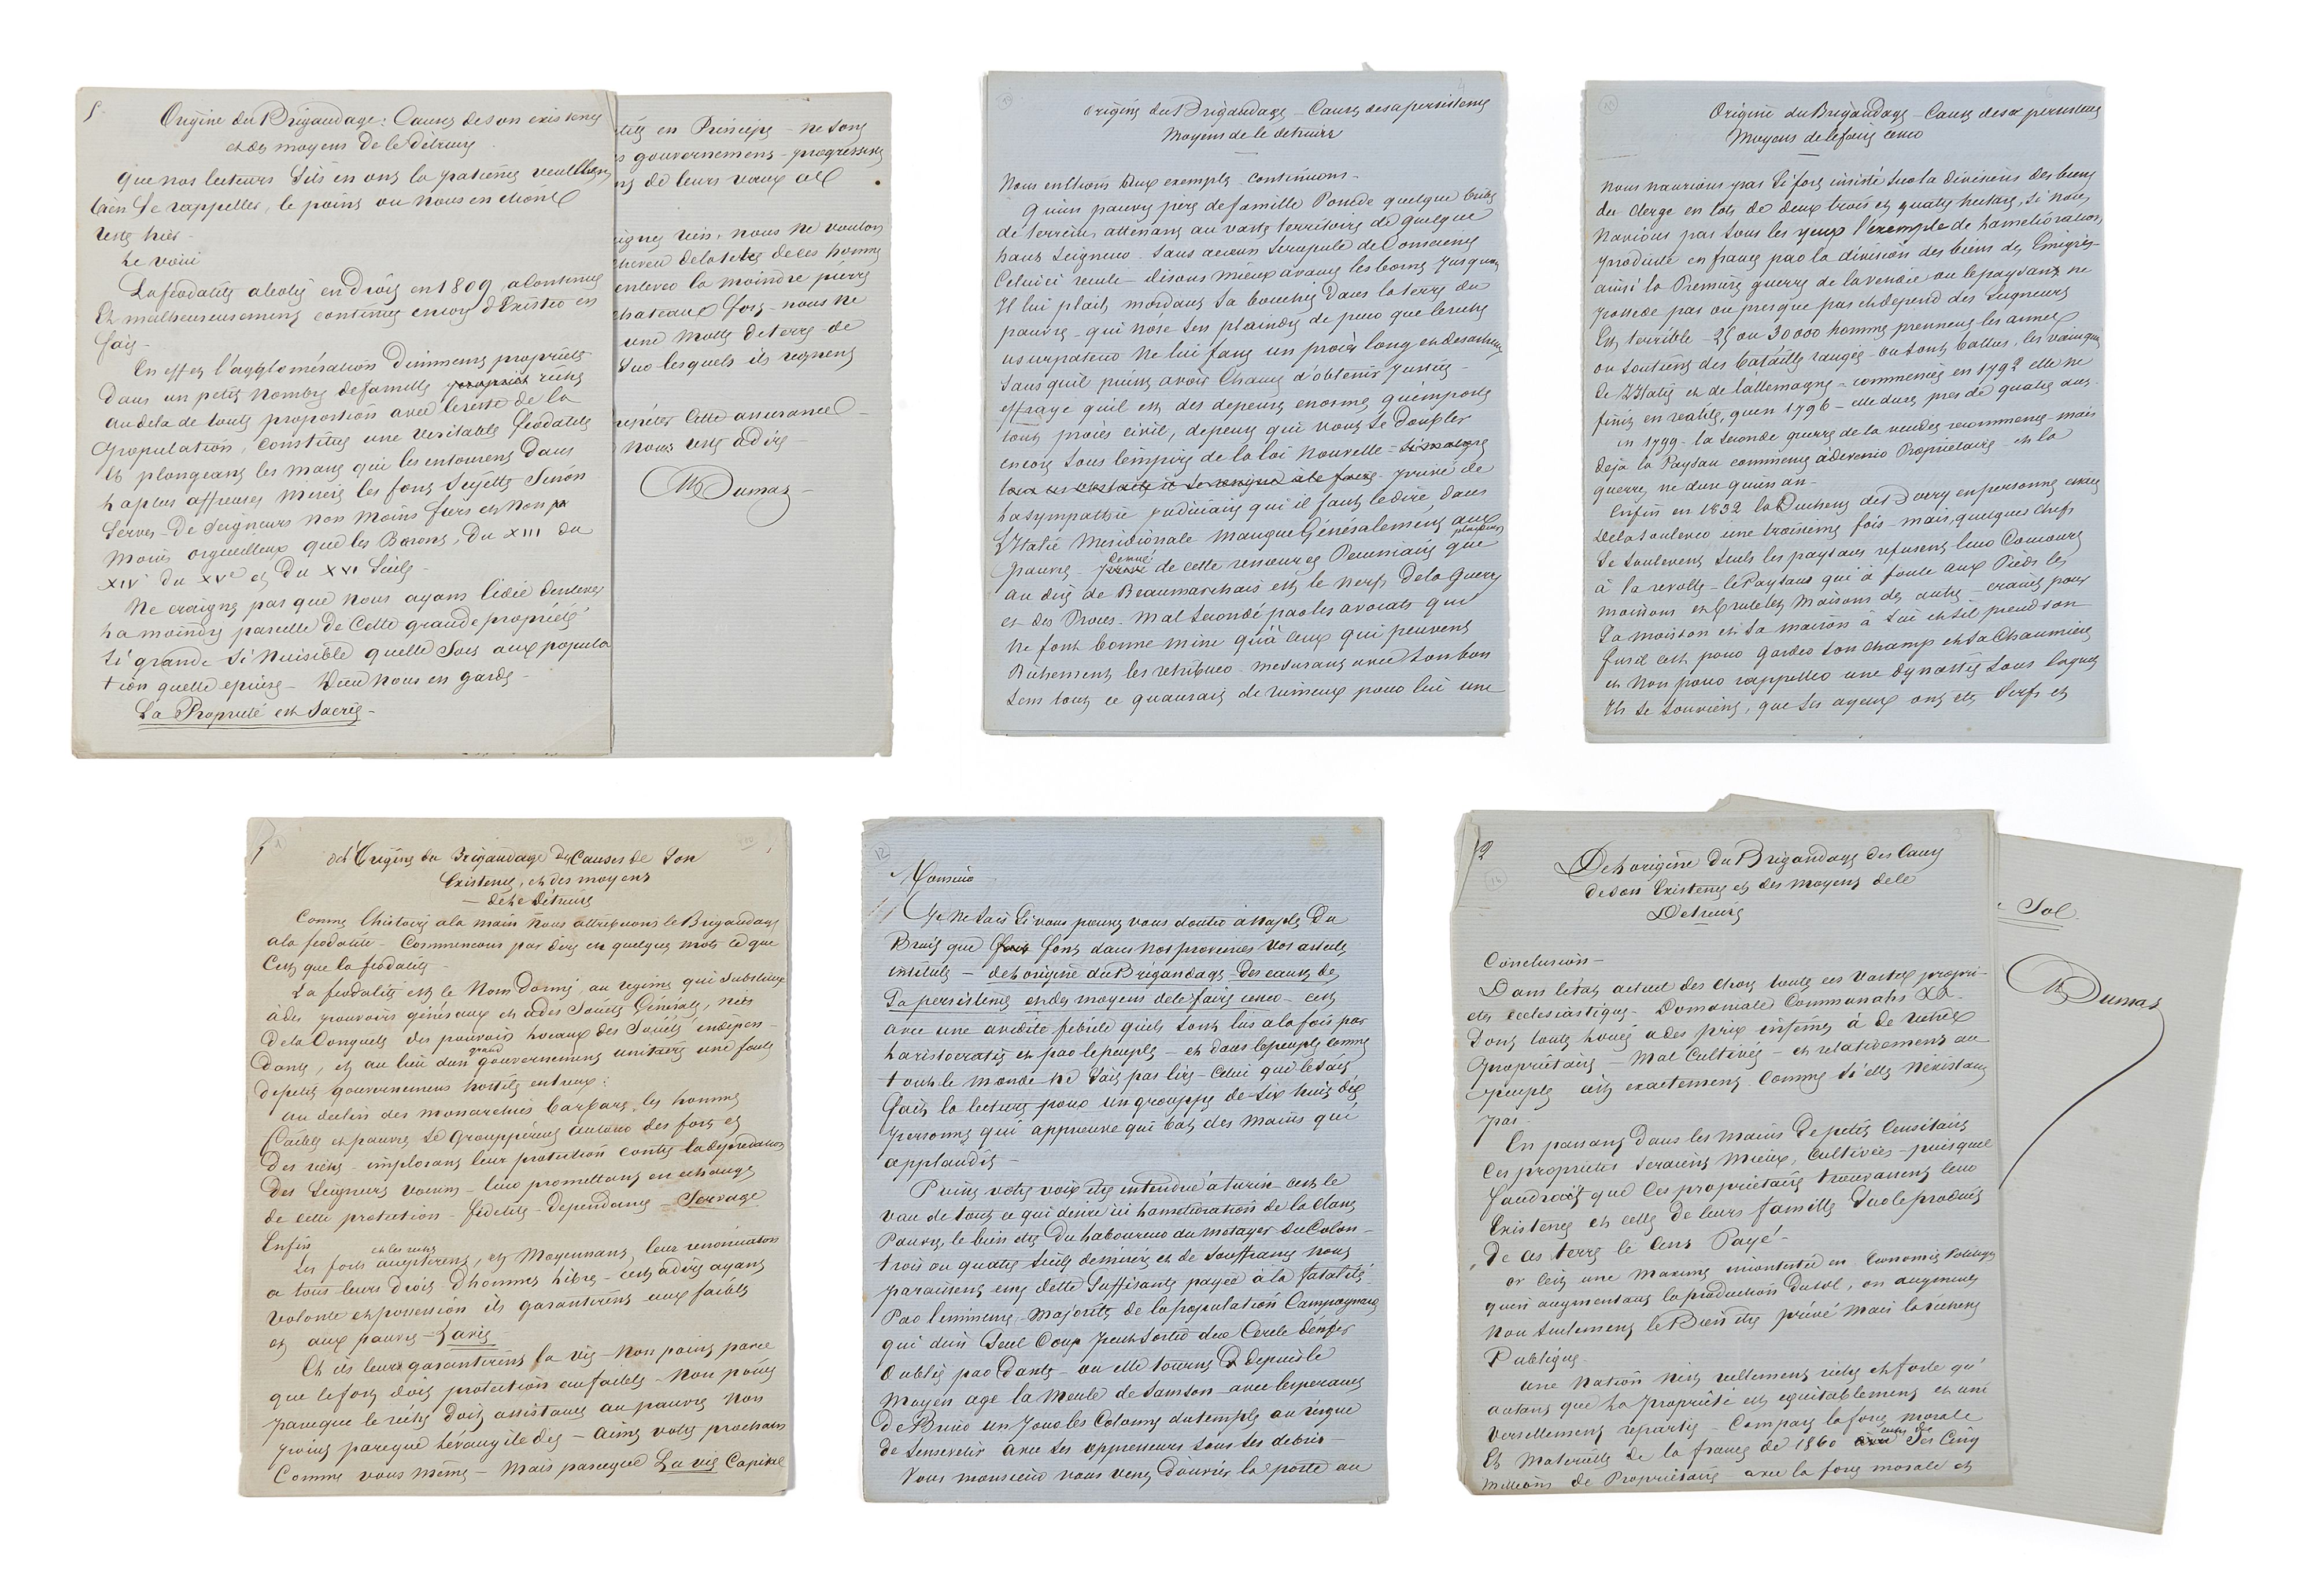 5
Origine du Brigandage : Causes de son existence
et des moyens de le Détruire
que nos lecteurs s'ils en ont la patience veuillent
bien se rappeller, le point ou nous en étions
resté hier -
Le voici
La féodalité abolie en Droit en 1809 a continué
et malheureusement continue encore d'Exister en
fait -
En effet l'agglomération D'immenses propriétés
Dans un petit nombre de famille riches
au dela de toute proportion avec le reste de la
population, constitue une Veritable féodalité
et plongeant les masses qui les entourent Dans
la plus affreuse misère les font sujettes sinon
Serves - De Seigneurs non moins fiers et non
moins orgueilleux que les Barons, Du XIII du
XIVe du XVe et Du XVI Siècle -
Ne craignez pas que nous ayons l'idée d'enlever
la moindre parcelle de Cette grande propriété
si grande si nuisible quelle Soit aux popula
tion quelle epuise - Dieu nous en garde -
La Propriété est Sacrée -
en Principe - ne sont
gouvernemens - progressifs
de leurs vœux et
rien, nous ne voulons
cheveu de la tete de ces hommes
enlever la moindre pierre
chateaux fort - nous ne
une Motte de terre de
sur lesquels ils regnent
repéter Cette assurance -
nous reste a dire -
Al Dumas -
origine du Brigandage - Causes de sa persistence
Moyens de le detruire
Nous en étions aux exemples continuons -
Qu'un pauvre pere de famille Possede quelque bribes
de terrein, attenant au vaste territoire de quelque
haut Seigneur - Sans aucun Scrupule de Conscience
Celui ci recule - disons mieux avance les bornes jusquou
Il lui plait, mordant sa bouchée Dans la terre du
pauvre - qui n'ose s'en plaindre de peur que le riche
usurpateur ne lui fasse un procès long et desastreux
sans quil puisse avoir Chance d'obtenir justice -
effrayé quil est des depenses enormes qu'emporte
tout procès civil, depense qui vont se doubler
encore sous l'empire de la loi Nouvelle -
privé de
la sympathie judiciaire qui il faut le dire, dans
L'Italie Meridionale manque Généralement aux plaideurs
pauvres - denué de cette ressource Pecuniaire que
au dire de Beaumarchais est le nerf De la Guerre
et des Proces. Mal secondé par les avocats qui
ne font bonne mine qu'à ceux qui peuvent
Richement les retribuer - mesurant avec son bon
sens tout ce qu'aurait de ruineux pour lui une
Origine du Brigandage - Causes de sa persistence
Moyens de le faire cesser
Nous n'aurions pas Si fort insisté sur la division des biens
du clergé en lots de deux trois et quatre hectares, Si nous
n'avions pas sous les yeux l'exemple de l'amélioration
produite en france par la division des biens des Emigrés -
ainsi la Premiere guerre de la vendée ou le paysant ne
possede pas ou presque pas et depend des Seigneurs
Est terrible - 25 ou 30000 hommes prennent les armes
ou soutient des batailles rangées - ou sont battus les vainqueurs
de l'Italie et de l'allemagne - commencée en 1792 elle ne
finit en realité, quen 1796 - elle dure pres de quatre ans -
en 1799 - la seconde guerre de la vendée recommence mais
deja le Paysan commence à devenir Propriétaire - et la
guerre ne dure quun an -
Enfin en 1832 la Duchesse de Berry en personne essaie
de la soulever une troisieme fois - mais, quelques chefs
se soulevent seuls les paysans refusent leur Concours
à la revolte - le Paysans qui a foulé aux Pieds les
moissons et brulé les Maisons des autres - craint pour
Sa moisson et sa maison à lui et s'il prend son
fusil cest pour garder son champ et sa Chaumière
et Non pour rappeller une dynastie sous laquelle
Ils se souvient, que ses ayeux ont été Serfs et
1
de l'Origine du Brigandage Des Causes de Son
Existence, et des moyens
- de le Détruire
Comme l'histoire a la main nous attribuons le Brigandage
a la féodalité - Commencons par dire en quelques mots ce que
C'est que la féodalité -
La féodalité est le Nom donné, au régime qui substitue
à des pouvoirs généraux et à des Sociétés Générales, nées
De la Conquete des pouvoirs locaux des Sociétés indépen-
dantes, et au lieu d'un grand gouvernement unitaire une foule
de petits gouvernemens hostiles entreux :
au declin des monarchies barbares, les hommes
faibles et pauvres se grouppèrent autour des forts et
des riches - implorant leur protection contre la depredation
des Seigneurs voisins - leur promettant en echange
de cette protection - fidelité - Dependance - Servage
Enfin
Les forts et les riches acceptèrent, et Moyennant leur renonciation
a tous leurs droits d'hommes libres - cest a dire ayant
volonté et possession ils garantirent aux faibles
et aux pauvres - La vie -
Et ils leurs garantirent la vie - non point parce
que le fort doit protection au faible - Non point
parceque le riche doit assistance au pauvre Non
point parceque l'évangile dit - aimez votre prochain
Comme vous même - Mais parceque La vie Capitale
12
Monsieur
Je ne sais si vous pouvez vous douter à Naples Du
Bruit que font dans nos provinces vos articles
intitulés - de l'origine du Brigandage - des causes de
Sa persistence et des moyens de le faire cesser - cest
avec une avidité febrile qu'ils sont lus a la fois par
l'aristocratie et par le peuple - et dans le peuple comme
tout le monde ne sait pas lire - Celui qui le sait
fait la lecture pour un grouppe de six huit dix
personnes qui approuve qui bat des mains qui
applaudit -
Puisse votre voix être entendue à turin cest le
vœu de tout ce qui desire ici l'amélioration de la classe
Pauvre, le bien etre du laboureur du metayer du Colon -
trois ou quatre siècles de misère et de souffrance nous
paraissent une dette suffisante payée à la fatalité
Par l'immense majorité de la population Campagnarde
qui d'un Seul Coup peut sortir du Cercle d'enfer
oublié par Dante - ou elle tourne depuis le
moyen age la Meule de Samson avec l'esperance
de Briser un Jour les Colonnes du temple au risque
de s'ensevelir avec ses oppresseurs sous ses debris -
Vous monsieur vous venez d'ouvrir la porte au
12
De l'origine Du Brigandage des Causes
de son Existence et des moyens de le
Detruire
Conclusion -
Dans l'état actuel des choses toutes ces vastes propri-
étés ecclesiastiques - Domaniale Communales &&
Sont toutes louées a des prix infimes à de riches
Propriétaires Mal Cultivées - et relativement au
peuple c'est exactement Comme si elles n'existaient
pas.
En passant dans les mains de petits Censitaires
Ces propriétés seraient Mieux, Cultivées - puisquil
faudrait que Ces propriétaires trouvassent leur
Existence et celle de leurs familles sur le produit
De ces terre le Cens Payé -
or c'est une Maxime incontestée en Economie Politique
qu'en augmentant la production Du sol, on augmente
non seulement le Bien être privé Mais la richesse
Publique -
une Nation n'est reellement riche et forte qu'
autant que la Propriété est equitablement et uni
versellement repartie - Comparez la force morale
Et Materielle de la france de 1860 avec Ses Cinq
millions de Propriétaires avec la force morale et
Sol.
Al Dumas